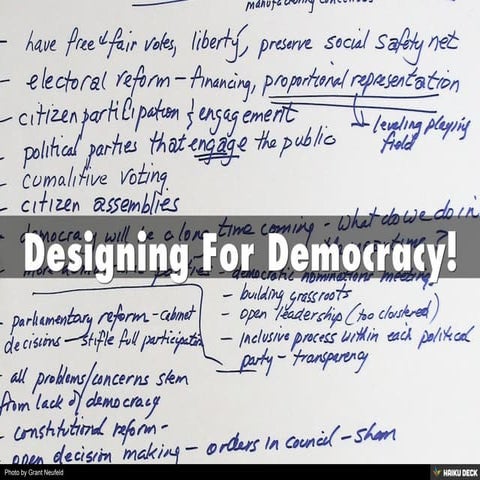 manufacturing
- have free & fair votes, liberty, preserve social safety net
- electoral reform - financing, proportional representation
- citizen participation & engagement
↳ leveling playing field
- political parties that engage the public
- cumalitive voting
- citizen assemblies
- democracy will be a long time coming - what do we do in
Designing For Democracy!
- democratic nominations meeting
- building grassroots
- open leadership (too cloistered)
- inclusive process within each political
party - transparency
- parliamentary reform - cabinet
decisions - stifle full participation
- all problems/concerns stem
from lack of democracy
- constitutional reform -
- open decision making - orders in council - sham
Photo by Grant Neufeld
HAIKU DECK